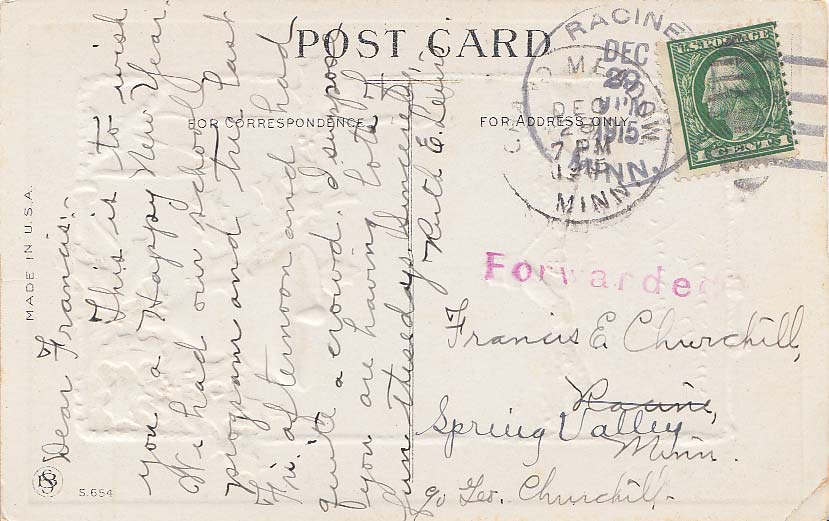 POST CARD
FOR CORRESPONDENCE
FOR ADDRESS ONLY
MADE IN U.S.A.
S. 654
RACINE
DEC
29
PM
1915
MINN.
GRAND MEADOW
DEC
29
7 PM
1915
MINN
U.S. POSTAGE
1 CENT 1
Forwarded
Dear Francis:-
This is to wish
you a Happy New Year.
We had our school
program and tree last
Fri. afternoon and had
quite a crowd. I suppose
you are having lots of
fun these days. Sincerely,
Ruth E. Lewis
Francis E. Churchill,
Racine,
Spring Valley
Minn.
c/o Geo. Churchill.